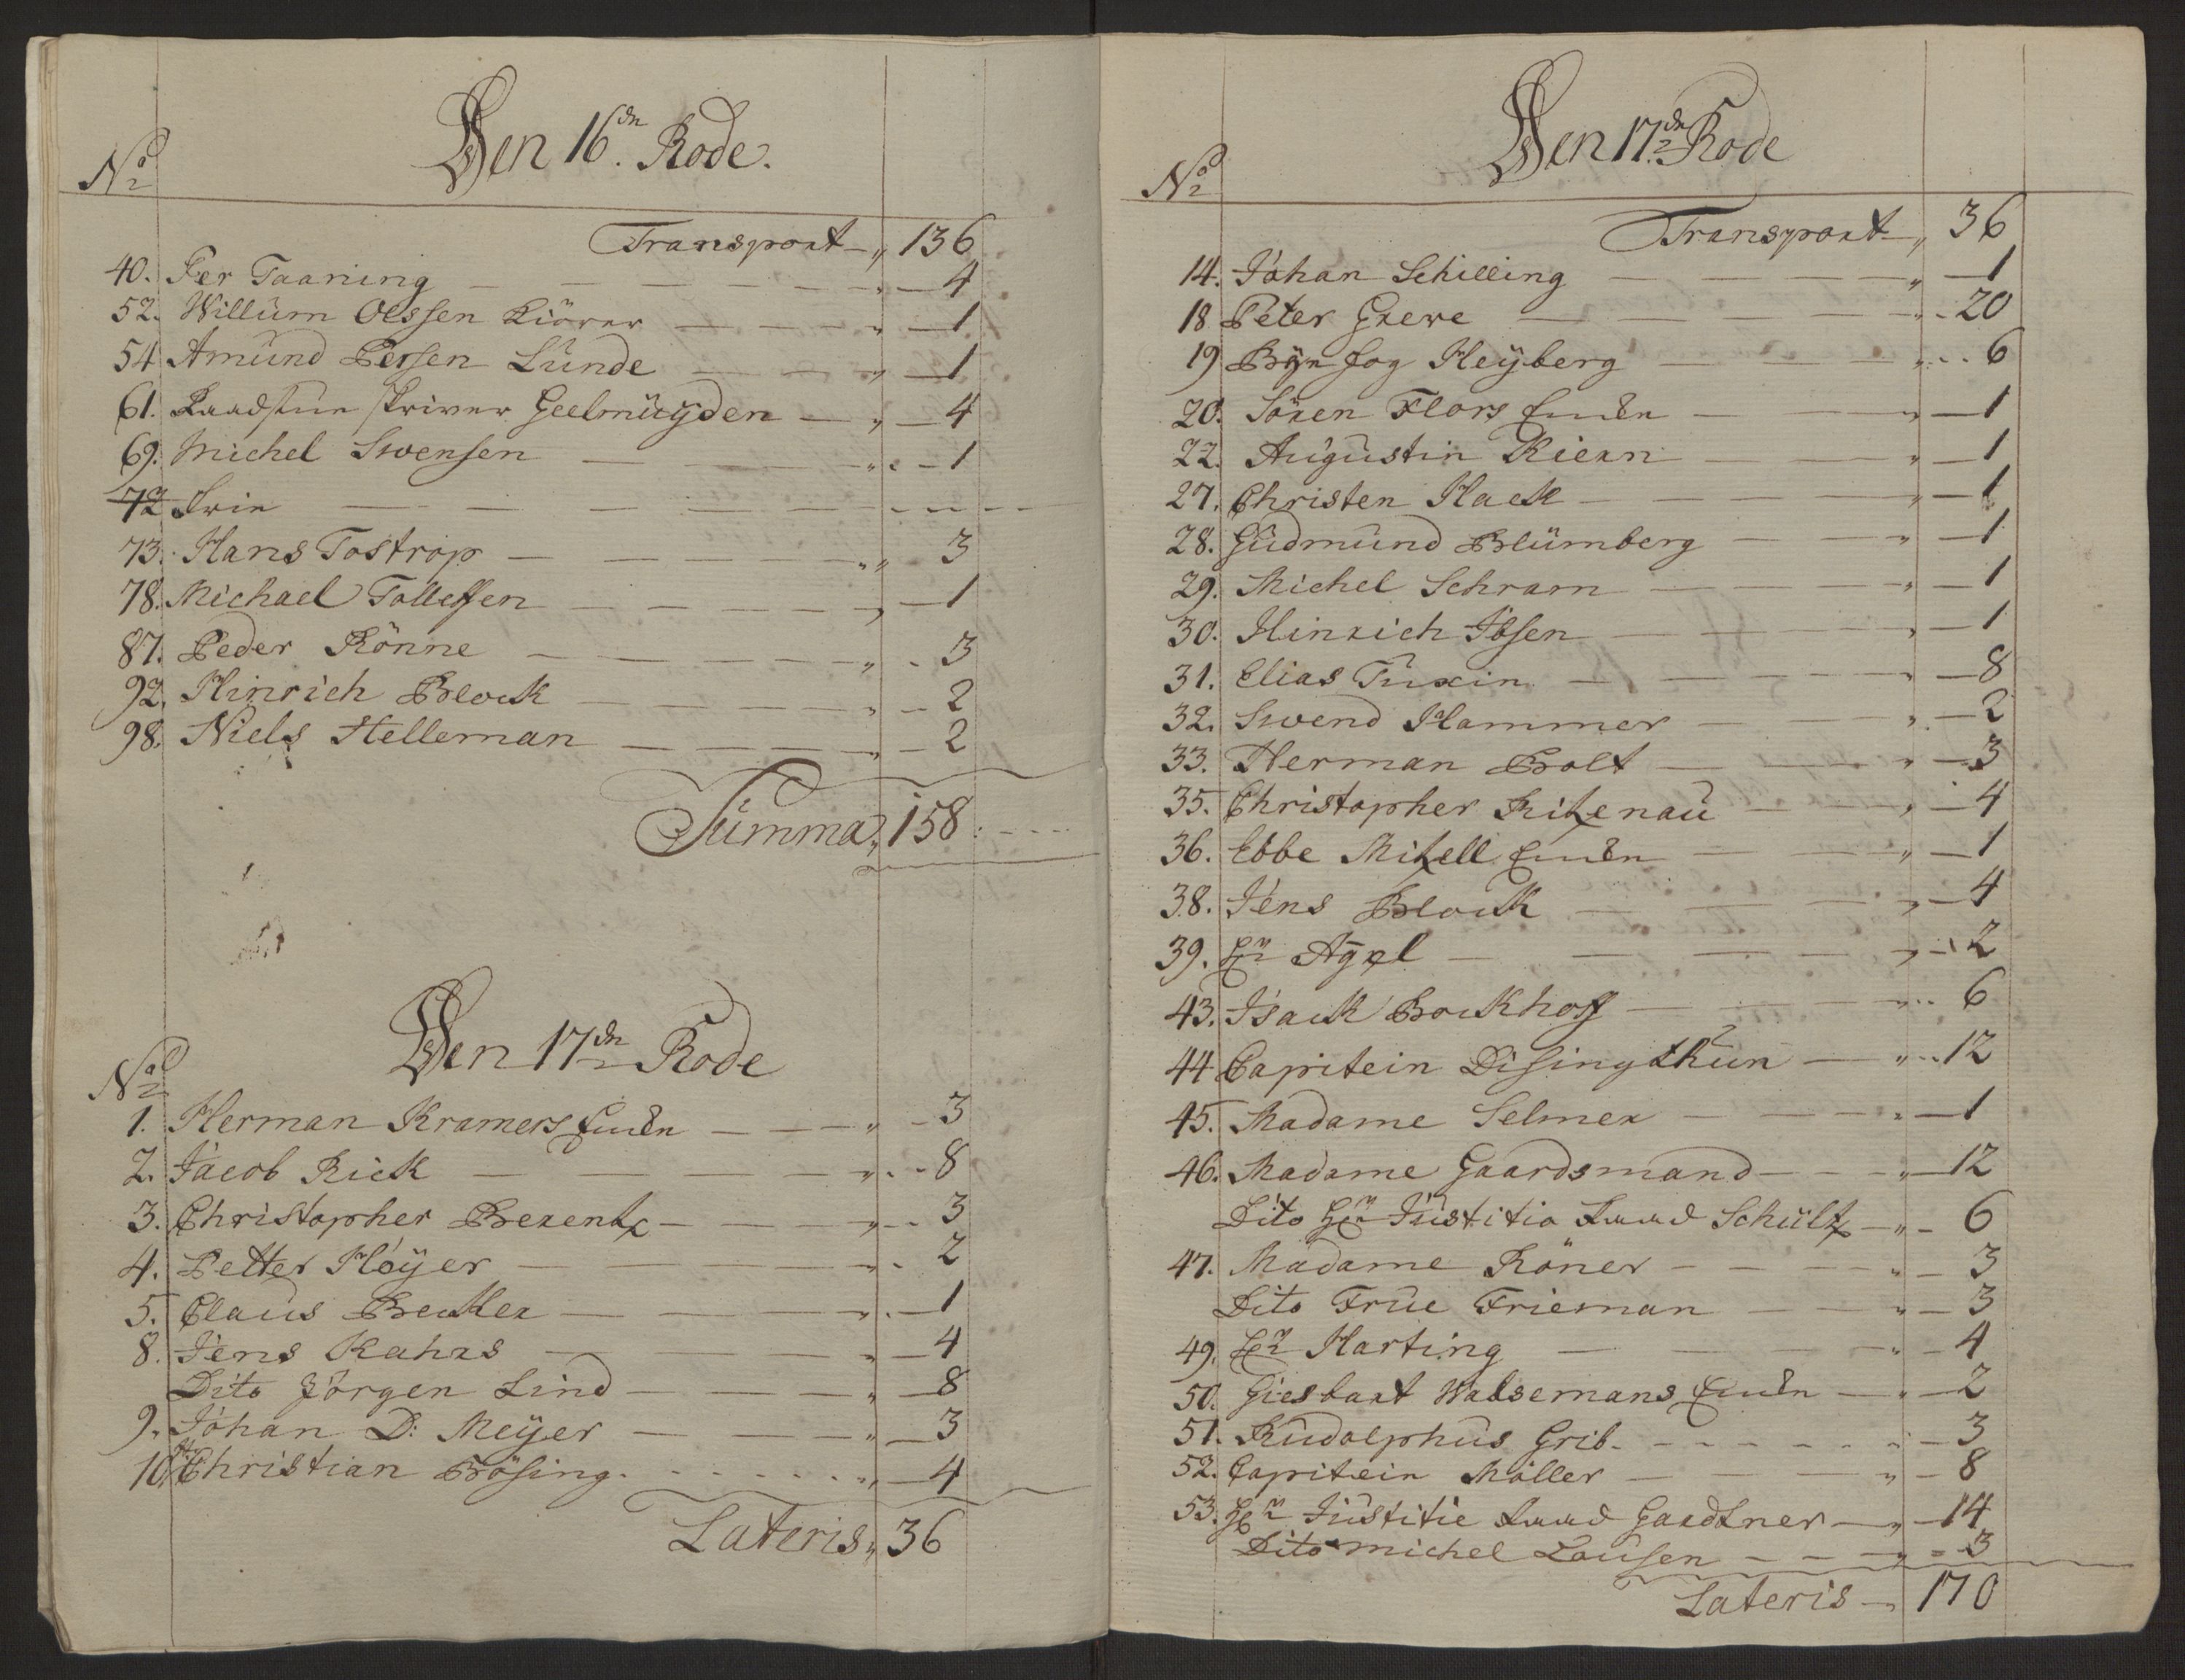 Den 16.dn Rode.
No
Transport 136
40. Per Taaning 4
52. Willum Olssen Kiörer 1
54 Amund Perssen Lunde 1
61. Raadstue skriver Geelmüyden 4
69. Michel Swensen 1
72 Frie
73. Hans Tostrop 3
78. Michael Tollefsen 1
87. Peder Rönne 3
92. Hinrich Block 2
98. Niels Helleman 2
Summa 158
Den 17dn Rode
No
1. Herman Kramers Enken 3
2. Jacob Rick 8
3. Christopher Berentz 3
4. Petter Höyer 2
5. Claus Becker 1
8. Jens Kahrs 4
Dito Jörgen Lind 8
9. Johan D: Meyer 3
10. Christian Bösing 4
Lateris 36
Den 17.dn Rode
No
Transport 36
14. Johan Schilling 1
18. Peter Grewe 20
19 Byefog Heyberg 6
20. Sören Flors Enken 1
22. Augustin Kiern 1
27. Christen Hack 1
28. Gudmund Blümberg 1
29. Michel Schram 1
30. Hinrich Ibsen 1
31. Elias Tuxin 8
32. Swend Hammer 2
33. Herman Bolt 3
35. Christopher Ritzenau 4
36. Ebbe Mitzell Enken 1
38. Jens Block 4
39. Hr Agel 2
43. Isack Bockhoff 6
44 Capitein Disingthun 12
45. Madame Selmer 1
46. Madame Gaardsmand 12
Dito Hr Justitio Raad Schultz 6
47. Madame Röner 3
Dito Frue Frieman 3
49. Hr Harting 4
50. Giesbart Walsemans Enken 2
51. Rudolphus Grib. 3
52. Capitein Möller 8
53. Hr Justitie Raad Gardtner 14
Dito michel Lousen 3
Lateris 170